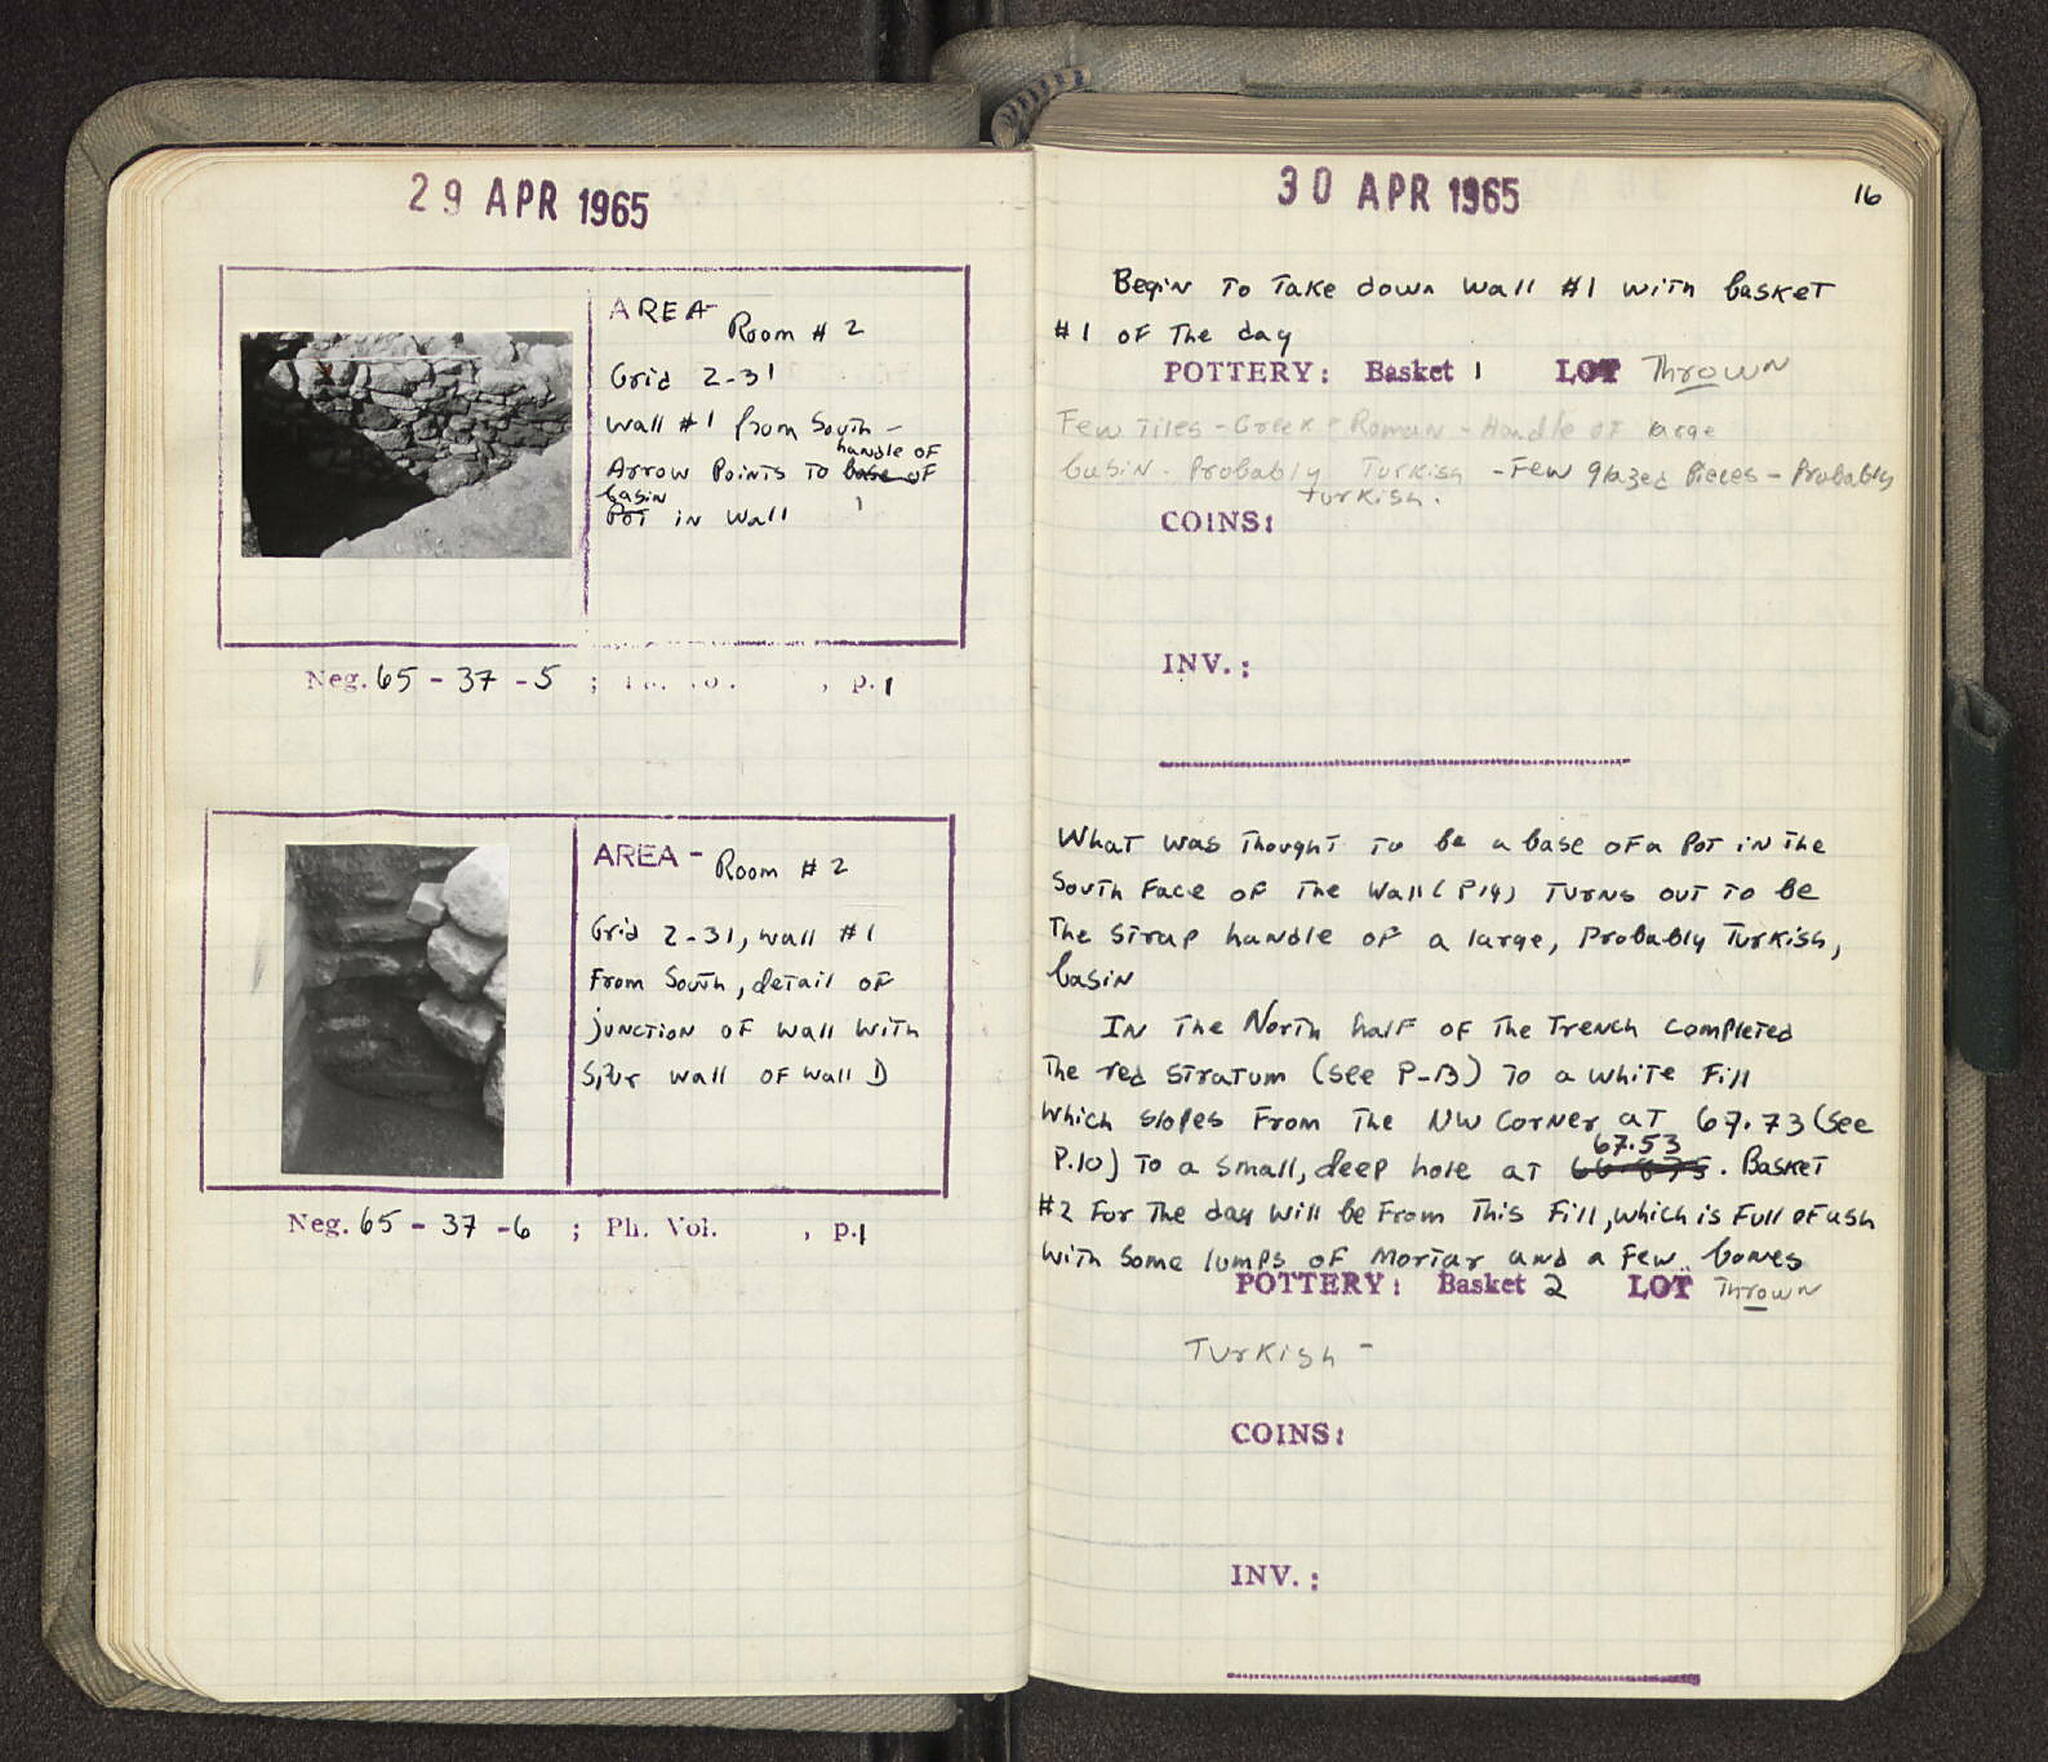 29 APR 1965
AREA- Room # 2
Grid 2-31
Wall #1 from South -
handle of
Arrow Points To base of
basin
Pot in Wall
Neg. 65 - 37 - 5 ; , p. 1
AREA - Room # 2
Grid 2-31, wall #1
From South, detail of
junction of wall with
Spur wall of wall D
Neg. 65 - 37 - 6 ; Ph. Vol. , p. 1
30 APR 1965
16
Begin To Take down Wall #1 with basket
#1 of The day
POTTERY: Basket 1 LOT Thrown
Few Tiles - Greek - Roman - Handle of large
basin - Probably Turkish - Few glazed Pieces - Probably
Turkish.
COINS:
INV.:
What was Thought To be a base of a Pot in The
South Face of The Wall (P14) Turns out To be
The Strap handle of a large, Probably Turkish,
basin
In The North half of The Trench completed
The red Stratum (see P-13) To a white Fill
which slopes From The NW Corner at 67.73 (See
67.53
P.10) To a small, deep hole at . Basket
#2 For The day will be From This Fill, which is Full of ash
with some lumps of Mortar and a Few bones
POTTERY: Basket 2 LOT Thrown
Turkish -
COINS:
INV.: